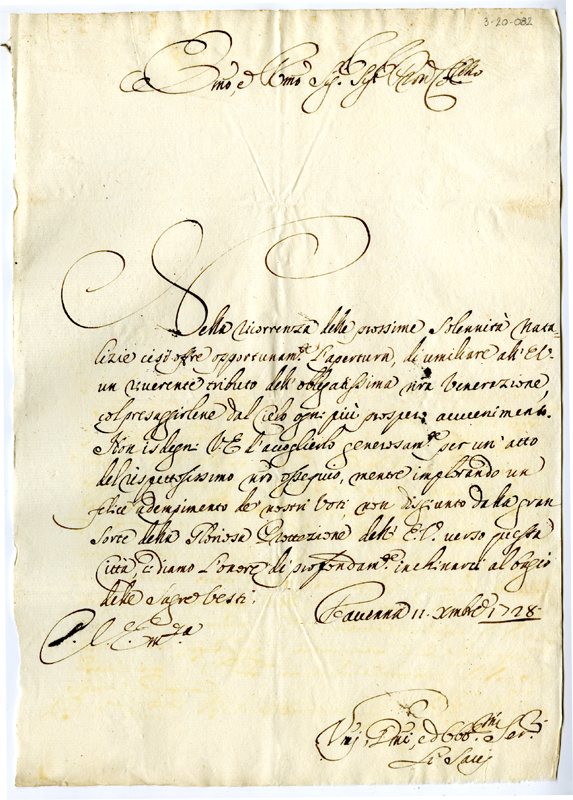 3-20-082
Emo, e Rmo Sig.r Sig.r Pron Collmo
Nella ricorrenza delle prossime Solennità Nata-
lizie ci si offre opportunam.te l'apertura, di umiliare all'E.V.
un riverente tributo dell'obbligatissima nra Venerazione,
col presaggirlene dal cielo ogni più prospero avvenimento.
Non isdegni V.E. l'accoglierlo generosam.te per un'atto
del rispettosissimo nrô osseguio, mentre implorando un
felice adempimento de nostri Voti non disgiunto dalla gran
Sorte della Gloriosa Protezione dell'E.V. verso questa
Città, ci diamo l'onore di profondam.te inchinarci al bagio
delle Sagre Vesti.
Ravenna 11. Xmbrê 1728.
V. Em.za
Umi, Dmi, ed Obb.mi Ser.ri
Li Savj